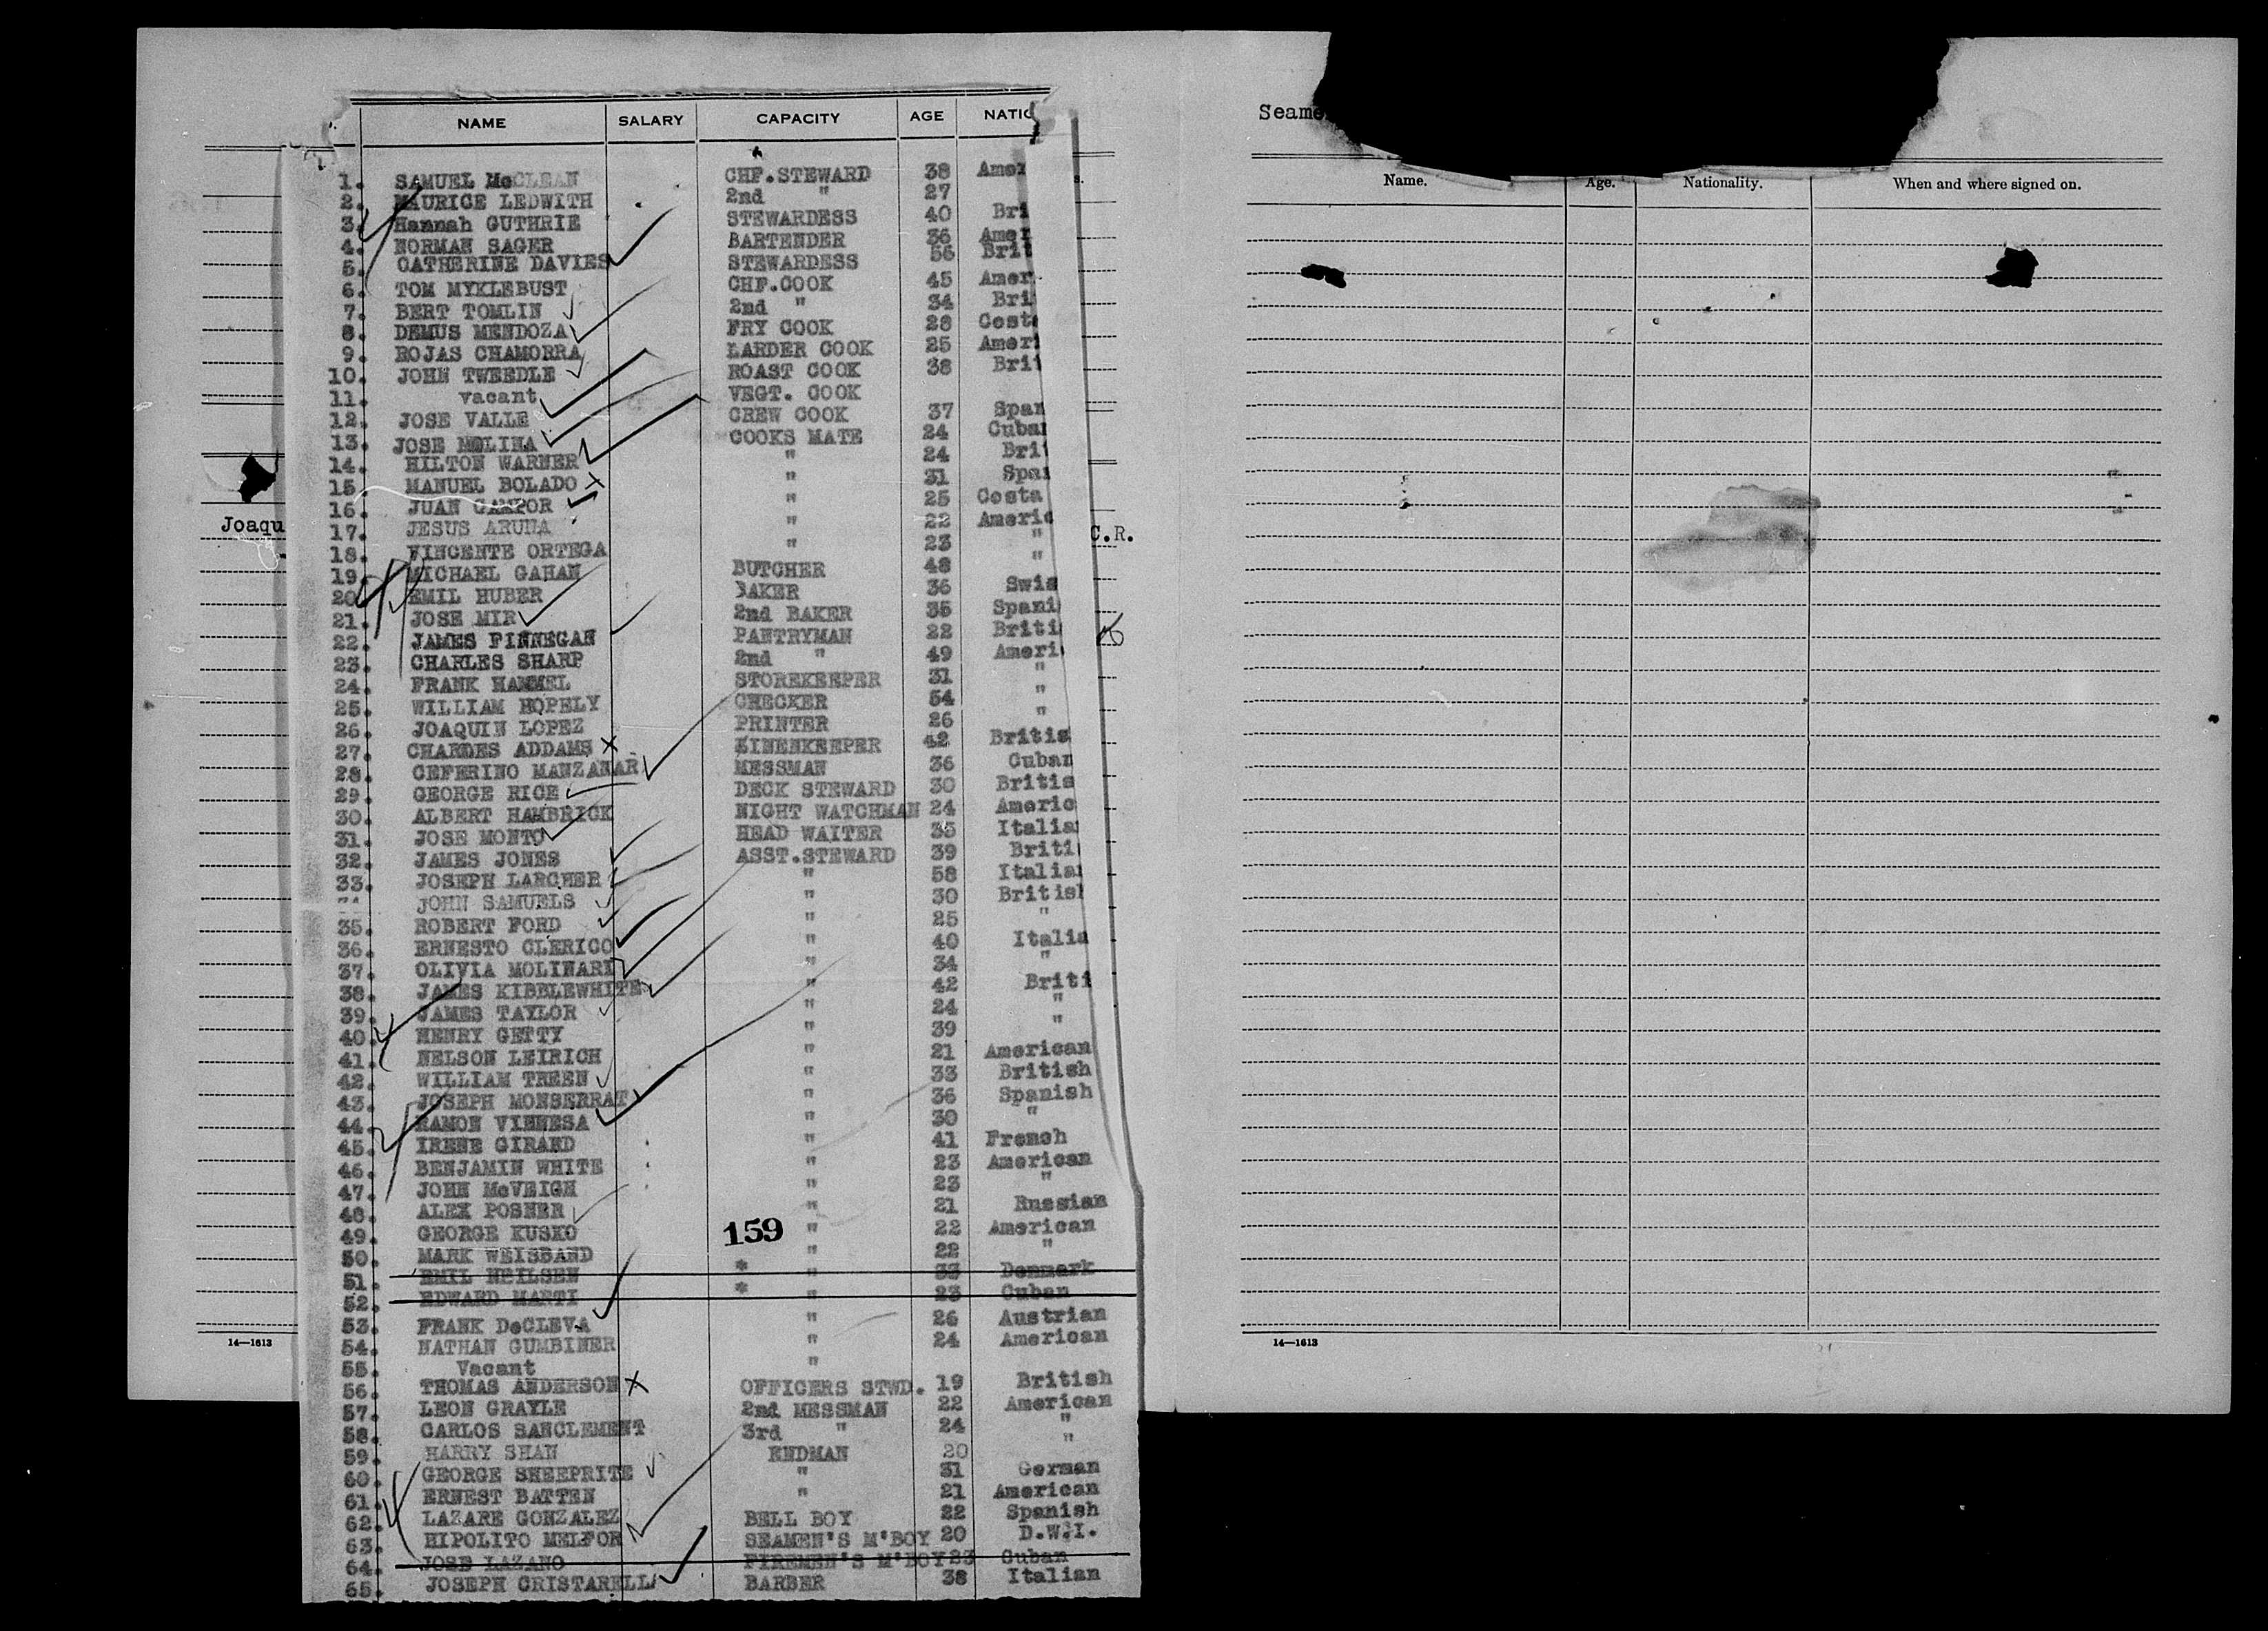 NAME SALARY CAPACITY AGE NATIO
1. SAMUEL McCLEAN CHF.STEWARD 38 Amer
2. MAURICE LEDWITH 2nd " 27
3. Hannah GUTHRIE STEWARDESS 40 Bri
4. NORMAN SAGER BARTENDER 36 Amer
5. CATHERINE DAVIES STEWARDESS 56 Brit
6. TOM MYKLEBUST CHF.COOK 45 Amer
7. BERT TOMLIN 2nd " 34 Bri
8. DEMUS MENDOZA FRY COOK 28 Costa
9. ROJAS CHAMORRA LARDER COOK 25 Ameri
10. JOHN TWEEDLE ROAST COOK 38 Brit
11. vacant VEGT. COOK
12. JOSE VALLE CREW COOK 37 Span
13. JOSE MOLINA COOKS MATE 24 Cuban
14. HILTON WARNER " 24 Brit
15. MANUEL BOLADO " 31 Span
16. JUAN CAMPOR " 25 Costa
17. JESUS ARUNA " 22 Americ
18. VINCENTE ORTEGA " 23 "
19. MICHAEL GAHAN BUTCHER 48 "
20. EMIL HUBER BAKER 36 Swis
21. JOSE MIR 2nd BAKER 35 Spani
22. JAMES FINNEGAN PANTRYMAN 22 Briti
23. CHARLES SHARP 2nd " 49 Ameri
24. FRANK HAMMEL STOREKEEPER 31 "
25. WILLIAM HOPELY CHECKER 54 "
26. JOAQUIN LOPEZ PRINTER 26 "
27. CHARLES ADDAMS LINENKEEPER 42 Britis
28. CEFERINO MANZANAR MESSMAN 36 Cuban
29. GEORGE RICE DECK STEWARD 30 Britis
30. ALBERT HAMBRICK NIGHT WATCHMAN 24 Americ
31. JOSE MONTO HEAD WAITER 35 Italia
32. JAMES JONES ASST.STEWARD 39 Briti
33. JOSEPH LARCHER " 58 Italia
JOHN SAMUELS " 30 British
35. ROBERT FORD " 25 "
36. ERNESTO CLERICO " 40 Italia
37. OLIVIA MOLINARI " 34 "
38. JAMES KIBBLEWHITE " 42 Briti
39. JAMES TAYLOR " 24 "
40. HENRY GETTY " 39 "
41. NELSON LEIRICH " 21 American
42. WILLIAM TREEN " 33 British
43. JOSEPH MONSERRAT " 36 Spanish
44. RAMON VIENESA " 30 "
45. IRENE GIRAND " 41 French
46. BENJAMIN WHITE " 23 American
47. JOHN McVEIGH " 23 "
48. ALEX POSNER " 21 Russian
49. GEORGE KUSKO " 22 American
159
50. MARK WEISBAND " 22 "
51. EMIL NEILSEN * " 33 Denmark
52. EDWARD MARTI * " 23 Cuban
53. FRANK DeCLEVA " 26 Austrian
54. NATHAN GUMBINER " 24 American
55. Vacant "
56. THOMAS ANDERSON OFFICERS STWD. 19 British
57. LEON GRAYLE 2nd MESSMAN 22 American
58. CARLOS SANCLEMENT 3rd " 24 "
59. HARRY SHAN ENDMAN 20 "
60. GEORGE SHEEPRITE " 31 German
61. ERNEST BATTEN " 21 American
62. LAZARE GONZALEZ BELL BOY 22 Spanish
63. HIPOLITO MELFOR SEAMEN'S M'BOY 20 D.W.I.
64. JOSE LAZANO FIREMEN'S M'BOY 23 Cuban
65. JOSEPH CRISTARELLA BARBER 38 Italian
Joaqu
C.R.
14—1613
Seame
Name. Age. Nationality. When and where signed on.
14—1613